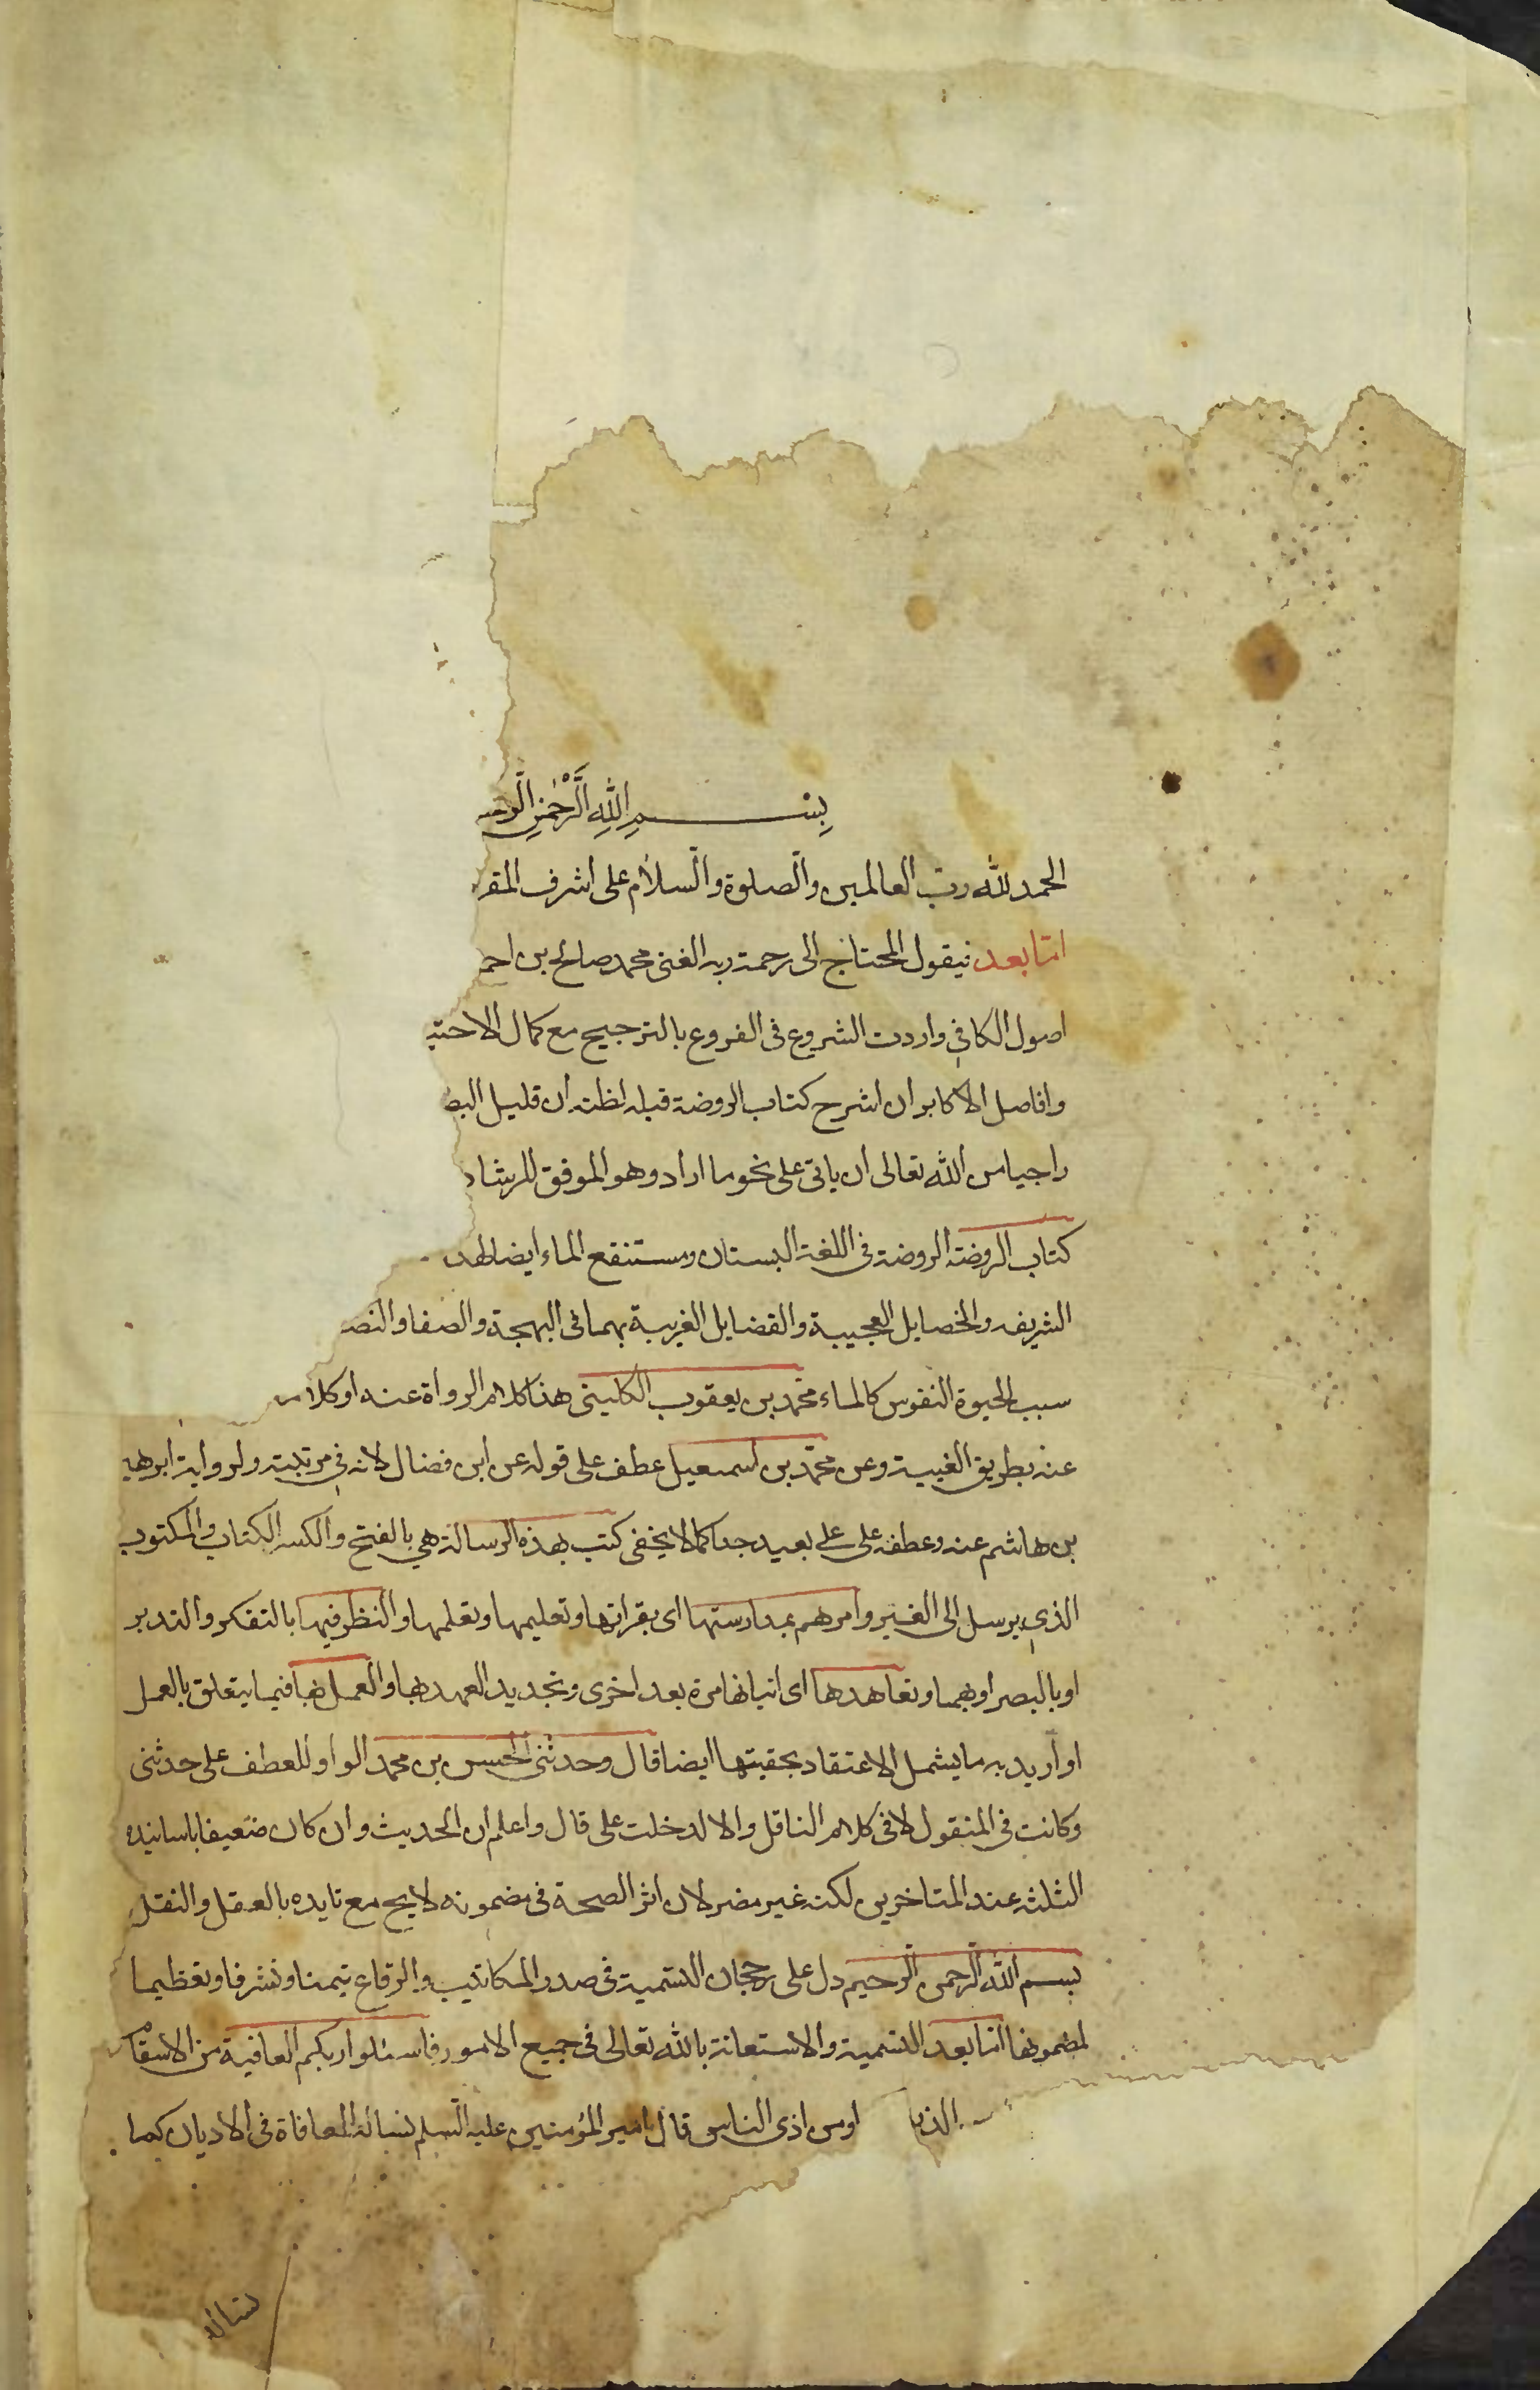 بِسْمِ اللّٰهِ الرَّحْمٰنِ
الحمد لله رب العالمين والصلوة والسلام على اشرف
اما بعد فيقول المحتاج الى رحمة ربه الغنى محمد صالح بن
اصول الكافي واردت الشروع فى الفروع بالترجيح مع كمال
وافاضل الاكابر ان اشرح كتاب الروضة قبله لظنه ان قليل
راجيا من الله تعالى ان ياتى على نحو ما اراد وهو الموفق للرشاد
كتاب الروضة الروضة فى اللغة البستان ومستنقع الماء ايضا
الشريفه والخصايل العجيبة والفضايل الغريبة بهما فى البهجة والصفا
سبب لحيوة النفوس كالماء محمد بن يعقوب الكلينى هذا كلام الرواة عنه او
عنه بطريق الغيبة وعن محمد بن اسمعيل عطف على قوله عن ابن فضال لانه فى مرتبته ولرواية
بن هاشم عنه وعطفه على على بعيد جدا كما لا يخفى كتب بهذه الرسالة هي بالفتح والكسر الكتاب والمكتوب
الذي يرسل الى الغير وامرهم بمدارستها اى بقراتها وتعليمها وتعلمها والنظر فيها بالتفكر والتدبر
او بالبصر او بهما وتعاهدها اى اتيانها مرة بعد اخرى وتجديد العهد بها والعمل بها فيما يتعلق بالعمل
او اريد به ما يشمل الاعتقاد بحقيتها ايضا قال وحدثنى الحسن بن محمد الواو للعطف على حدثنى
وكانت فى المنقول لا فى كلام الناقل والا لدخلت على قال واعلم ان الحديث وان كان ضعيفا باسانيده
الثلثه عند المتاخرين لكنه غير مضر لان اثر الصحة فى مضمونه لايح مع تايده بالعقل والنقل
بسم الله الرحمن الرحيم دل على رجحان التسمية فى صدر المكاتيب والرقاع تيمنا وتشرفا وتعظيما
لمضمونها اما بعد التسمية والاستعانة بالله تعالى فى جميع الامور فاسئلوا ربكم العافية من الاسقام
اومن اذى الناس قال امير المؤمنين عليه السلم نساله المعافاة فى الاديان كما
نساله